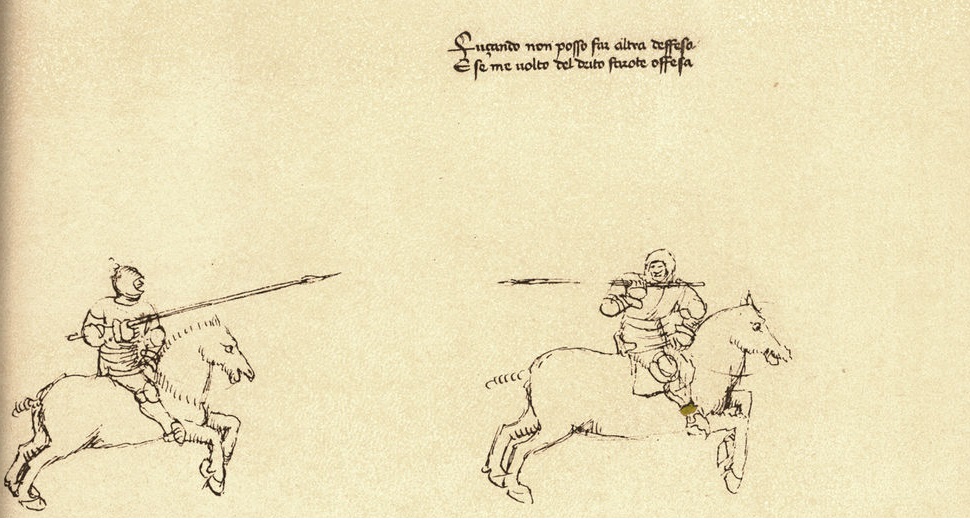 Fuçando non posso far altra deffesa
E se me volto del drito starote offesa